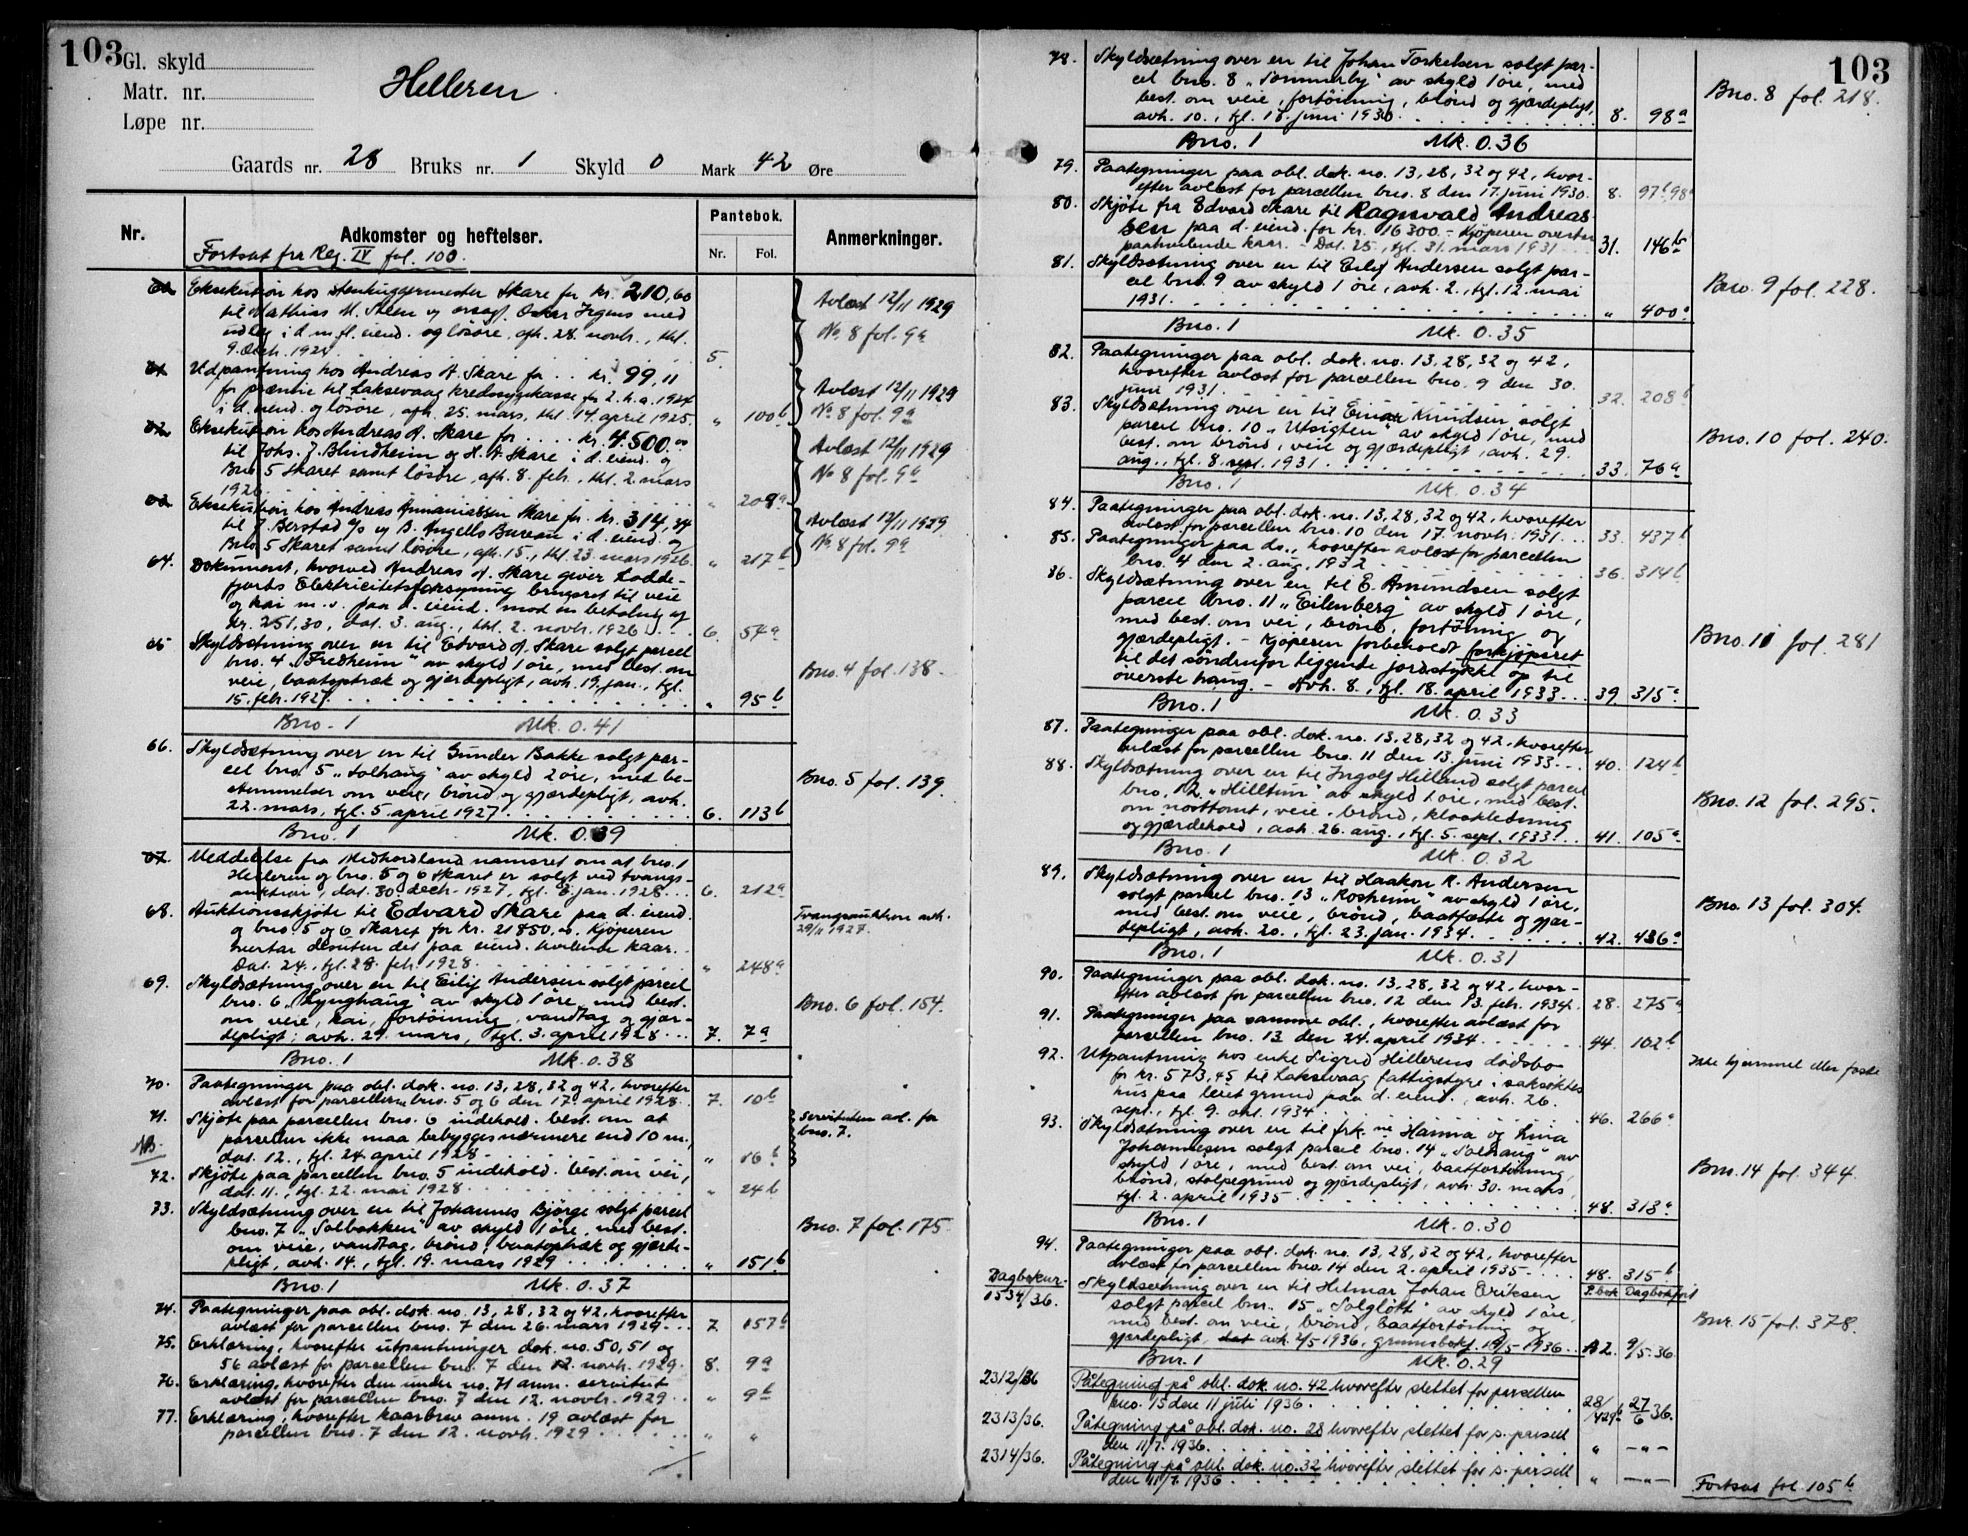 103
Gl. skyld
Matr. nr.
Løpe nr.
Helleren
Gaards nr. 28 Bruks nr. 1 Skyld 0 Mark 42 Øre
Nr. Adkomster og heftelser. Pantebok. Nr. Fol. Anmerkninger.
Fortsat fra Reg. IV fol. 100.
Eksekution hos Stenhuggermester Skare for kr. 210,60
til Mathias M. og orsagf. Oskar Irgens med
udlæg i d. m. fl. eiend. og løsøre, afh. 28. novb., thl.
5.
Avlæst 12/11 1929
No. 8 fol. 9a
61. Udpantning hos Andreas A. Skare for .. kr. 99,11
for præmie til Laksevaag kredssygekasse for 2. h.a. 1924
i d. eiend. og løsøre, afh. 25. mars, thl. 14. april 1925. " 100b
Avlæst 12/11 1929
No. 8 fol. 9a
62. Eksekution hos Andreas A. Skare for .... kr. 4500.00
til Johs. J. Blindheim og H. A. Skare i d. eiend. og
Bno. 5 Skaret samt løsøre, afh. 8. feb., thl. 2. mars
1926 " 209a
Avlæst 12/11 1929
No. 8 fol. 9a
63. Eksekution hos Andreas Ananiassen Skare for kr. 314,24
til J. Berstad % og B. Angells Bureau i d. eiend. og
Bno. 5 Skaret samt løsøre, afh. 15., thl. 23. mars 1926. " 217b
Avlæst 12/11 1929
No. 8 fol. 9a
64. Dokument, hvorved Andreas A. Skare giver Lodde-
fjords Elektricitetsforsyning brugsret til veie
og kai m. v. paa d. eiend. mod en betaling af
kr. 251,30, dat. 3. aug., thl. 2. novb. 1926 6. 57a
65 Skyldsætning over en til Edvard A. Skare solgt parcel
bno. 4 "Fredheim" av skyld 1 øre, med best. om
veie, baatoptræk og gjerdepligt, avh. 19. jan., tgl.
15. feb. 1927. " 95b
Bno. 4 fol. 138.
Bno. 1 Mk. 0.41
66. Skyldsætning over en til Gunder Bakke solgt par-
cel bno. 5 "Solhaug" av skyld 2 øre, med be-
stemmelser om veie, brønd og gjærdepligt, avh.
22. mars, tgl. 5. april 1927. 6. 113b
Bno. 5 fol. 139.
Bno. 1 Mk. 0.39
67. Meddelelse fra Midhordland namsret om at bno. 1
Helleren og bno. 5 og 6 Skaret er solgt ved tvangs-
auktion, dat. 30. decb. 1927, tgl. 3. jan. 1928 ... 6. 212a
68. Auktionsskjøte til Edvard Skare paa d. eiend.
og bno. 5 og 6 Skaret for kr. 21850,00. Kjøperen
overtar desuten det paa eiend. hvilende kaar.
Dat. 24., tgl. 28. feb. 1928. " 248a
Tvangsauktion avh.
29/11 1927.
69. Skyldsætning over en til Eilif Andersen solgt parcel
bno. 6 "Lynghaug" av skyld 1 øre, med best.
om veie, kai, fortøining, vandtag og gjær-
depligt; avh. 29. mars, tgl. 3. april 1928 ... 7. 7a
Bno. 6 fol. 154.
Bno. 1 Mk. 0.38
70. Paategninger paa obl. dok. no. 13, 28, 32 og 42, hvorefter
avlæst for parcellerne bno. 5 og 6 den 17. april 1928 7. 10b
71. Skjøte paa parcellen bno. 6 indehold. best. om at
parcellen ikke maa bebygges nærmere end 10 m.,
dat. 12., tgl. 24. april 1928 " 16b
NB.
Servituten avl. for
bno. 7.
72. Skjøte paa parcellen bno. 5 indehold. best. om vei,
dat. 11., tgl. 22. mai 1928 " 24b
73. Skyldsætning over en til Johannes Bjørge solgt parcel
bno. 7 "Solbakken" av skyld 1 øre, med best.
om veie, vandtag, brønd, baatoptræk og gjærde-
pligt, avh. 14., tgl. 19. mars 1929 " 151b
Bno. 7 fol. 175
Bno. 1 Mk. 0.37
74. Paategninger paa obl. dok. no. 13, 28, 32 og 42, hvorefter
avlæst for parcellen bno. 7 den 26. mars 1929 ... 7 157b
75. Erklæring, hvorefter utpantninger dok. no. 50, 51 og
56 avlæst for parcellen bno. 7 den 12. novb. 1929. 8. 9a
76. Erklæring, hvorefter den under no. 71 anm. servitut
avlæst for parcellen bno. 7 den 12. novb. 1929 .. " 9b
77. Erklæring, hvorefter kaarbrev anm. 19 avlæst for
parcellen bno. 7 den 12. novb. 1929 " "
103
78. Skyldsætning over en til Johan Torkelsen solgt par-
cel bno. 8 "Sommerly" av skyld 1 øre, med
best. om veie, fortøining, brønd og gjærdepligt,
avh. 10., tgl. 17. juni 1930. 8. 98a
Bno. 8 fol. 218.
Bno. 1 Mk. 0.36
79. Paategninger paa obl. dok. no. 13, 28, 32 og 42, hvor-
efter avlæst for parcellen bno. 8 den 17. juni 1930. 8. 97b, 98a
80. Skjøte fra Edvard Skare til Ragnvald Andreas-
sen paa d. eiend. for kr. 16300.- Kjøperen overtar
paahvilende kaar. - Dat. 25., tgl. 31. mars 1931 31. 146b
81. Skyldsætning over en til Eilif Andersen solgt par-
cel bno. 9 av skyld 1 øre, avh. 2., tgl. 12. mai
1931. " 400a
Bno. 9 fol. 228.
Bno. 1 Mk. 0.35
82. Paategninger paa obl. dok. no. 13, 28, 32 og 42,
hvorefter avlæst for parcellen bno. 9 den 30.
juni 1931. 32. 208b
83. Skyldsætning over en til Einar Knudsen solgt
parcel bno. 10 "Utsigten" av skyld 1 øre, med
best. om brønd, veie og gjærdepligt, avh. 29.
aug., tgl. 8. sept. 1931. 33. 76a
Bno. 10 fol. 240.
Bno. 1 Mk. 0.34
84. Paategninger paa obl. dok. no. 13, 28, 32 og 42, hvorefter
avlæst for parcellen bno. 10 den 17. novb. 1931 ... 33. 437b
85. Paategninger paa do., hvorefter avlæst for parcellen
bno. 4 den 2. aug. 1932 36. 314b
86. Skyldsætning over en til E. Amundsen solgt
parcel bno. 11 "Eilenberg" av skyld 1 øre,
med best. om vei, brønd, fortøining og
gjærdepligt. - Kjøperen forbeholdt forkjøpsret
til det søndenfor liggende jordstykke op til
øverste hang. - Avh. 8., tgl. 18. april 1933 ... 39. 315a
Bno. 11 fol. 281
Bno. 1 Mk. 0.33
87. Paategninger paa obl. dok. no. 13, 28, 32 og 42, hvorefter
avlæst for parcellen bno. 11 den 13. juni 1933 ... 40. 124b
88. Skyldsætning over en til Ingolf Hilland solgt parcel
bno. 12 "Hilltun" av skyld 1 øre, med best.
om nosttomt, veie, brønd, kloakledning
og gjærdehold, avh. 26. aug., tgl. 5. sept. 1933. 41. 105a
Bno. 12 fol. 295.
Bno. 1 Mk. 0.32
89. Skyldsætning over en til Haakon R. Andersen
solgt parcel bno. 13 "Rosheim" av skyld 1 øre,
med best. om veie, brønd, baatfæste og gjær-
depligt, avh. 20., tgl. 23. jan. 1934. 42. 436a
Bno. 13 fol. 304.
Bno. 1 Mk. 0.31
90. Paategninger paa obl. dok. no. 13, 28, 32 og 42, hvor-
efter avlæst for parcellen bno. 12 den 13. feb. 1934. 28. 275a
91. Paategninger paa samme obl., hvorefter avlæst for
parcellen bno. 13 den 24. april 1934 44. 102b
92. Utpantning hos enke Sigrid Hellerens dødsbo
for kr. 573,45 til Laksevaag fattigstyre i saksøktes
hus paa leiet grund paa d. eiend., avh. 26.
sept., tgl. 9. okt. 1934 46. 266a
Ikke hjemmel eller feste
93. Skyldsætning over en til frk.ne Hanna og Lina
Johannesen solgt parcel bno. 14 "Solhaug" av
skyld 1 øre, med best. om vei, baatfortøining,
brønd, stolpegrund og gjærdepligt, avh. 30. mars,
tgl. 2. april 1935. 48. 313a
Bno. 14 fol. 344.
Bno. 1 Mk. 0.30
94. Paategninger paa obl. dok. no. 13, 28, 32 og 42, hvorefter
avlæst for parcellen bno. 14 den 2. april 1935 48. 315b
Dagboknr. P.bok Dagbokført
1534/36. Skyldsetning over en til Hilmar Johan Eriksen
solgt parcel bnr. 15 "Solgløtt" av skyld 1 øre,
med best. om veie, brønd, baatfortøining og
gjærdepligt, avh. 2/5-1936, grunnboksf. 19/5-1936 .. A2. 9/5-36.
Bnr. 15 fol. 378.
Bnr. 1 Mk. 0.29
2312/36 Påtegning på obl. dok. no. 42 hvorefter slettet for parsellen
bno. 15 den 11 juli 1936. 28/429b 27/6 36.
2313/36. Påtegning på obl. dok. no. 28 hvorefter slettet for s. parsell
den 11/7. 1936. " - " -
2314/36. Påtegning på obl. dok. no. 32 hvorefter slettet for s. parsell
den 11/7. 1936 " - " -
Fortsat fol. 105b